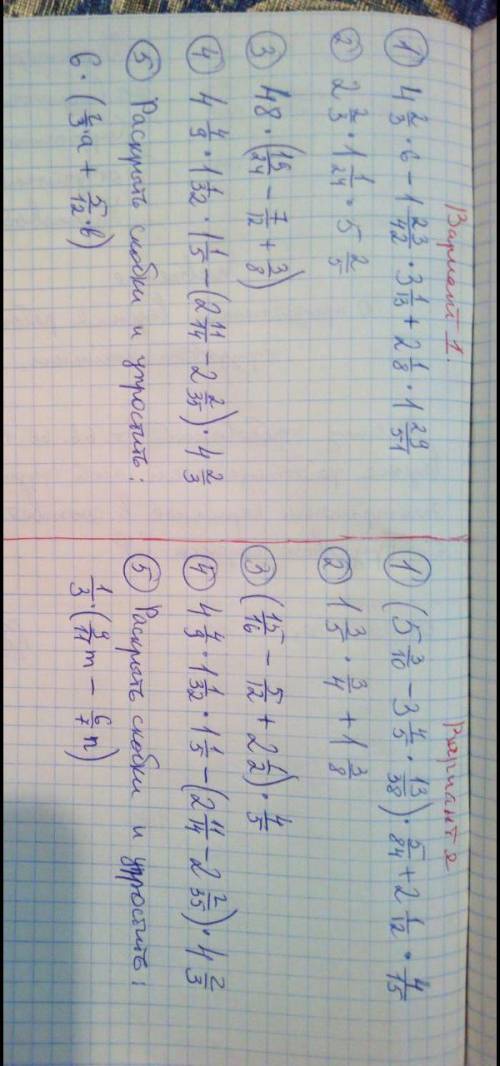 Вариант 1.
① 4 2/3 · 6 − 1 23/42 · 3 1/13 + 2 1/8 · 1 29/51
② 2 2/3 · 1 1/24 · 5 2/5
③ 48 · (15/24 − 7/12 + 3/8)
④ 4 4/9 · 1 1/32 · 1 1/5 − (2 11/14 − 2 2/35) · 4 2/3
⑤ Раскрыть скобки и упростить:
6 · (2/3 a + 5/12 · b)
Вариант 2
① (5 3/10 − 3 4/5 · 13/38) · 5/84 + 2 1/12 · 4/15
② 1 3/5 · 3/4 + 1 3/8
③ (15/16 − 5/12 + 2 1/2) · 4/5
④ 4 4/9 · 1 1/32 · 1 1/5 − (2 11/14 − 2 2/35) · 4 2/3
⑤ Раскрыть скобки и упростить:
1/3 · (9/11 m − 6/7 n)